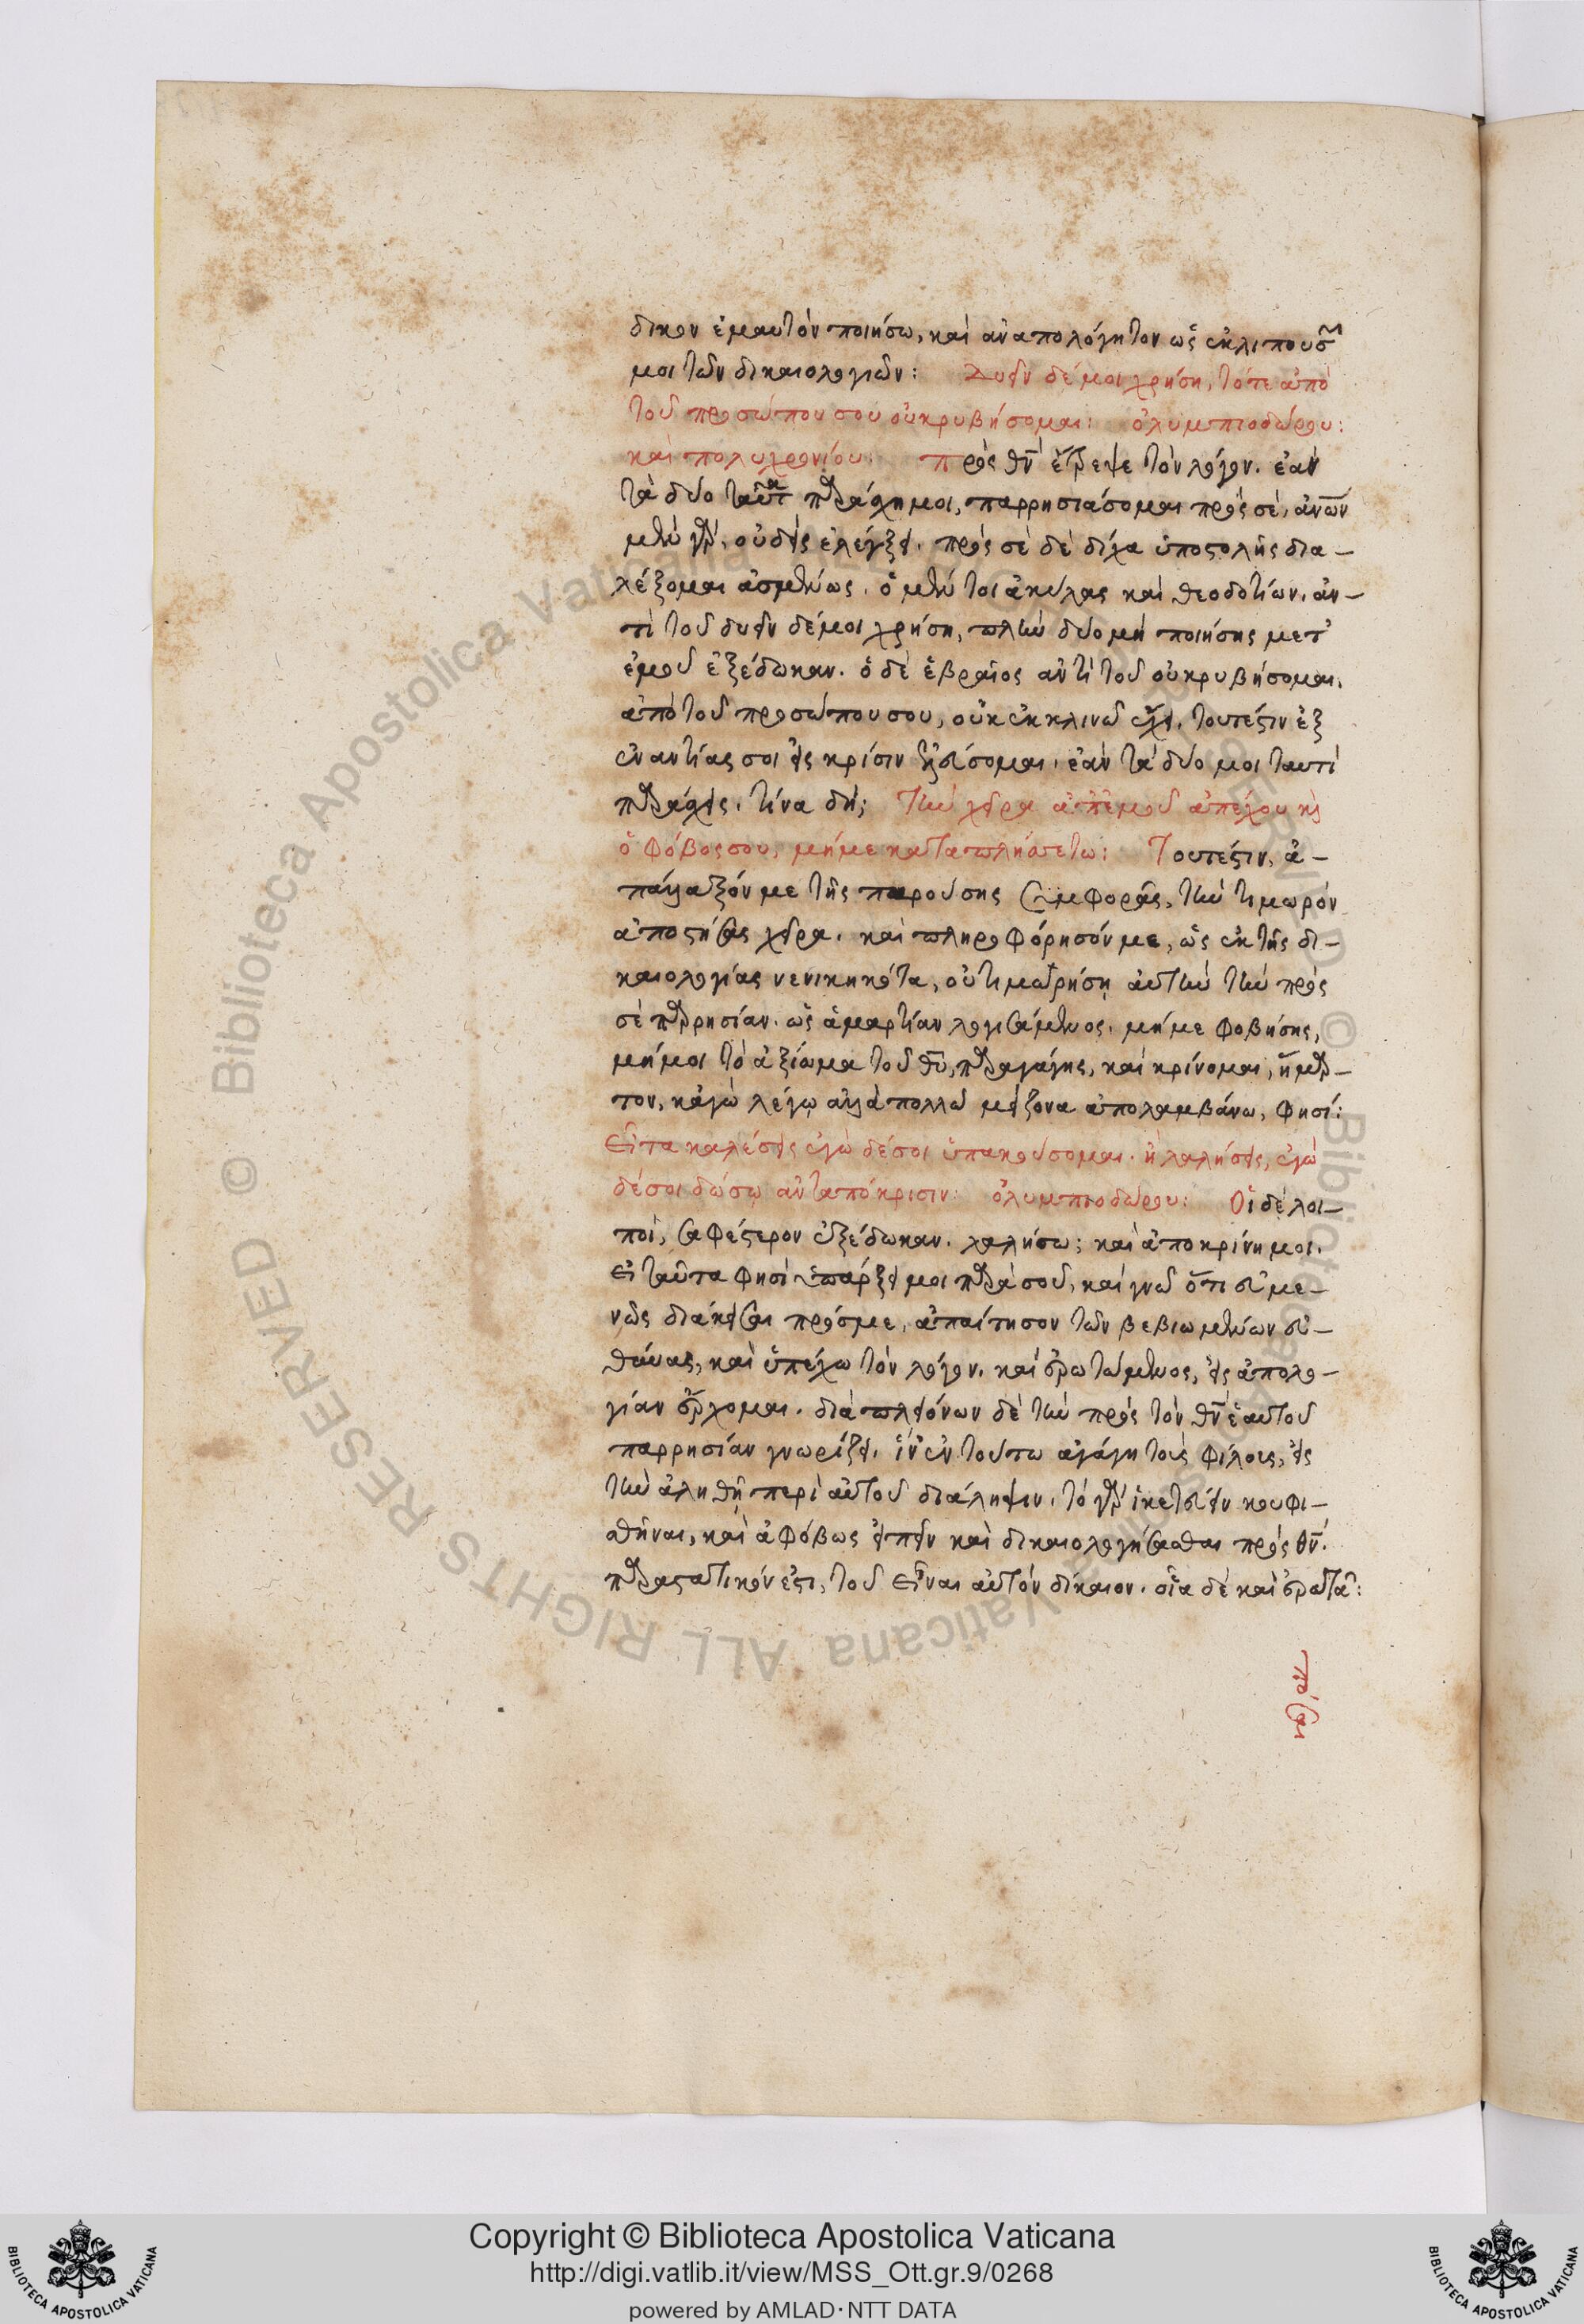 δικον ἐμαυτὸν ποιήσω, καὶ ἀναπολόγητον ὡς ἐκλιπουσῶν
μοι τῶν δικαιολογιῶν: Δυεῖν δέ μοι χρήσῃ, τότε ἀπὸ
τοῦ προσώπου σου οὐ κρυβήσομαι: ὀλυμπιοδώρου:
καὶ πολυχρονίου: Πρὸς θν̄ ἔτρεψε τὸν λόγον. ἐὰν
τὰ δύο ταῦτα παράσχῃ μοι, παρρησιάσομαι πρὸς σέ, ἀνων
μὲν γὰρ, οὐδεὶς ἐλέγξει. πρὸς σὲ δὲ δίχα ὑποστολῆς δια-
λέξομαι ἀσμένως. ὁ μέν τοι ἀκύλας καὶ θεοδοτίων, ἀν-
τὶ τοῦ δυεῖν δέ μοι χρήσῃ, πλὴν δύο μὴ ποιήσῃς μετ'
ἐμοῦ ἐξέδωκαν. ὁ δὲ ἑβραῖος ἀντὶ τοῦ οὐ κρυβήσομαι.
ἀπὸ τοῦ προσώπου σου, οὐκ ἐκκλινῶ ἔχει. τουτέστιν ἐξ
ἐναντίας σοι εἰς κρίσιν ἐλεύσομαι. ἐὰν τὰ δύο μοι ταυτὶ
παράσχῃς. τίνα δή; Τὴν χεῖρα ἀπ' ἐμοῦ ἀπέχου κὶ
ὁ φόβος σου, μή με καταπλησσέτω: Τουτέστιν, ἀ-
πάλλαξόν με τῆς παρούσης συμφορᾶς, τὴν τιμωρὸν
ἀποστήσας χεῖρα. καὶ πληροφόρησόν με, ὡς ἐκ τῆς δι-
καιολογίας νενικηκότα, οὐ τιμωρήσῃ αὐτὴν τὴν πρὸς
σὲ παρρησίαν. ὡς ἁμαρτίαν λογισάμενος. μή με φοβήσῃς,
μή μοι τὸ ἀξίωμα τοῦ θῡ, παραγάγῃς, καὶ κρίνομαι, ἧττ-
τον, κἀγὼ λέγω ἀλλὰ πολλῷ μείζονα ἀπολαμβάνω, φησί:
Εἶτα καλέσεις ἐγὼ δέ σοι ὑπακούσομαι. ἢ λαλήσεις, ἐγὼ
δέ σοι δώσω ἀνταπόκρισιν: ὀλυμπιοδώρου: Οἱ δὲ λοι-
ποὶ, σαφέστερον ἐξέδωκαν. λαλήσω; καὶ ἀποκρίνῃ μοι.
εἰ ταῦτα φησὶ ὑπάρξει μοι παρὰ σοῦ, καὶ γνῶ ὅτι εὐμε-
νῶς διάκεισαι πρός με, ἀπαίτησον τῶν βεβιωμένων εὐ-
θύνας, καὶ ὑπέχω τὸν λόγον. καὶ ἐρωτώμενος, εἰς ἀπολο-
γίαν ἔρχομαι. διὰ πλειόνων δὲ τὴν πρὸς τὸν θν̄ ἑαυτοῦ
παρρησίαν γνωρίζει. ἵν' ἐν τούτω ἀγάγῃ τοὺς φίλους, εἰς
τὴν ἀληθῆ περὶ αὐτοῦ διάληψιν. τὸ γὰρ ἱκετεύειν κουφι-
σθῆναι, καὶ ἀφόβως εἰπεῖν καὶ δικαιολογήσασθαι πρὸς θν̄.
παραστατικόν ἐστι, τοῦ εἶναι αὐτὸν δίκαιον. οἷα δὲ καὶ ἐρωτᾶ:
πόσαι